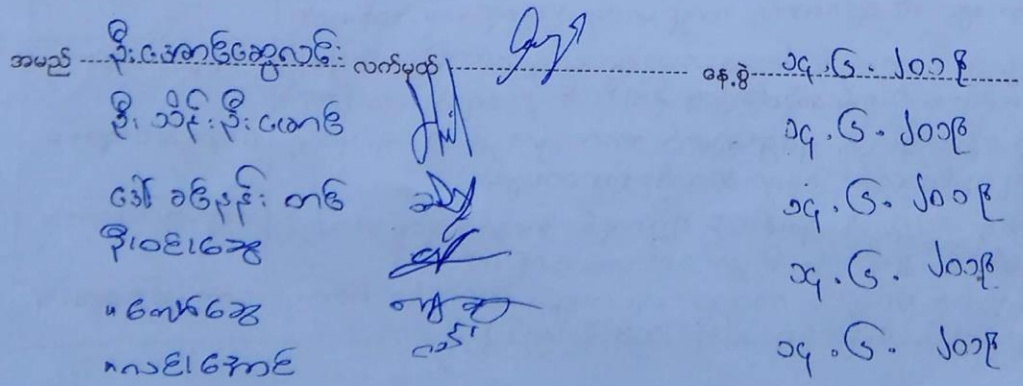 အမည် ဦးအောင်ဆွေလင်း လက်မှတ် နေ့စွဲ ၁၄.၆.၂၀၁၉
ဦးသိန်းဦးအောင် ၁၄.၆.၂၀၁၉
ဒေါ် ခင်နှင်း တင် ၁၄.၆.၂၀၁၉
ဦးဝင်းဆွေ ၁၄.၆.၂၀၁၉
" ကျော်ဆွေ ၁၄.၆.၂၀၁၉
" လင်းအောင်